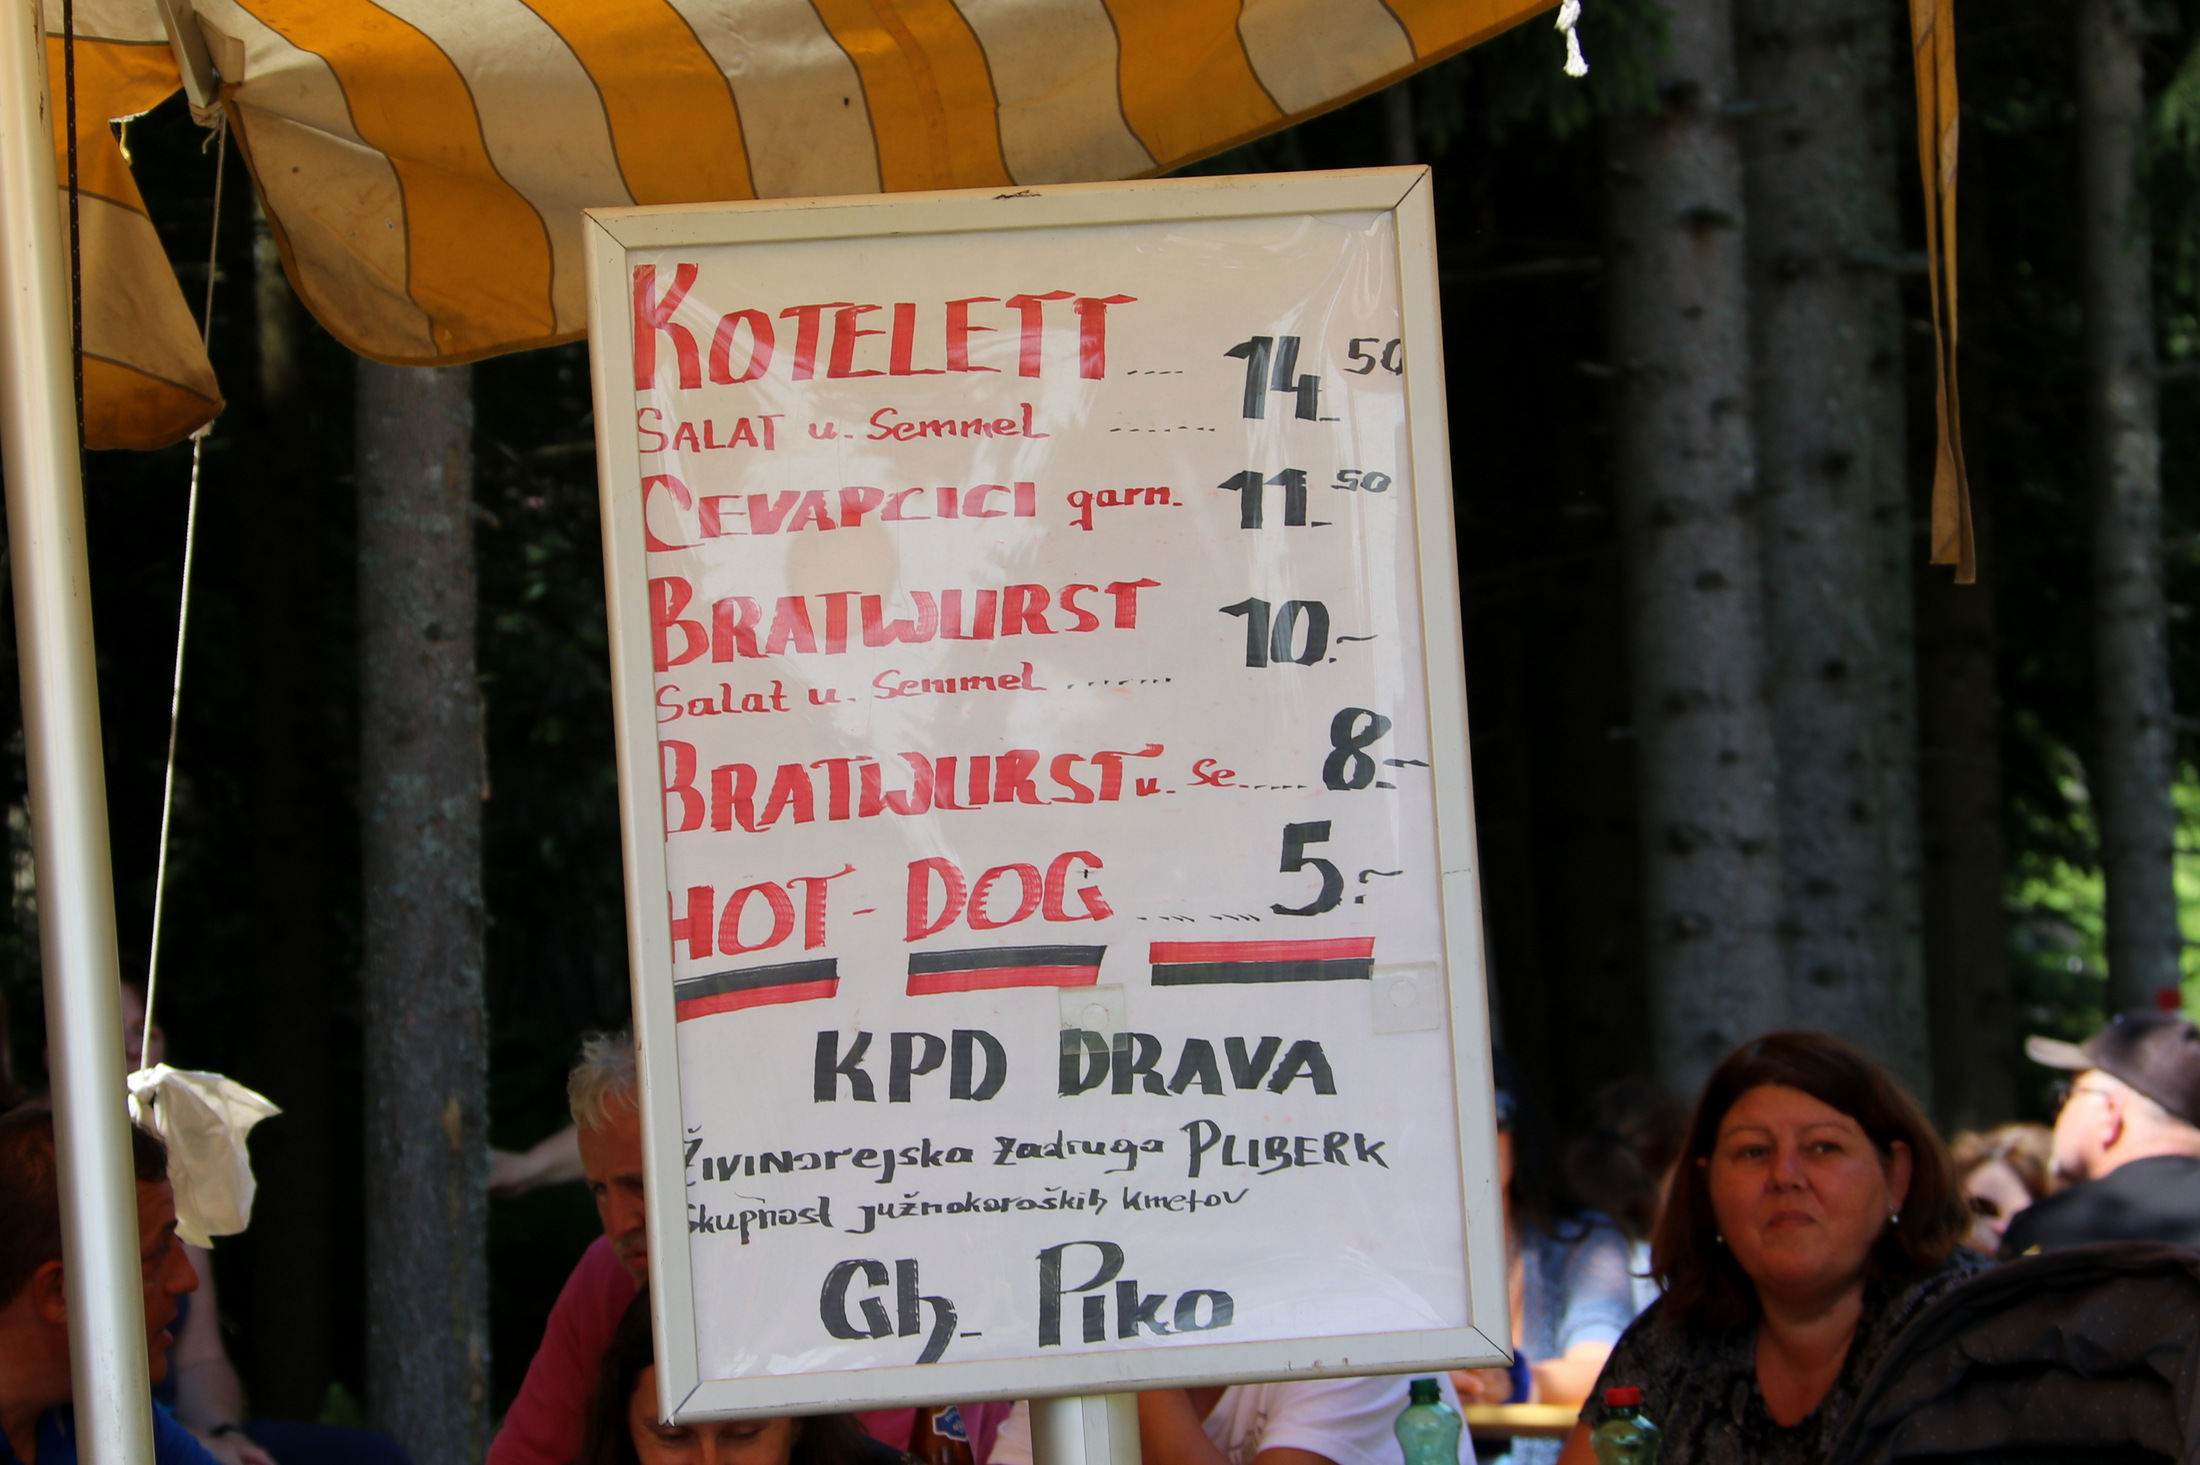 KOTELETT .... 14 50
SALAT u. Semmel .......
CEVAPCICI garn. 11 50
BRATWURST 10.-
Salat u. Semmel .......
BRATWURST u. Se..... 8.-
HOT-DOG ........ 5.-
KPD DRAVA
Živinorejska zadruga PLIBERK
Skupnost južnokoroških kmetov
Gh. Piko